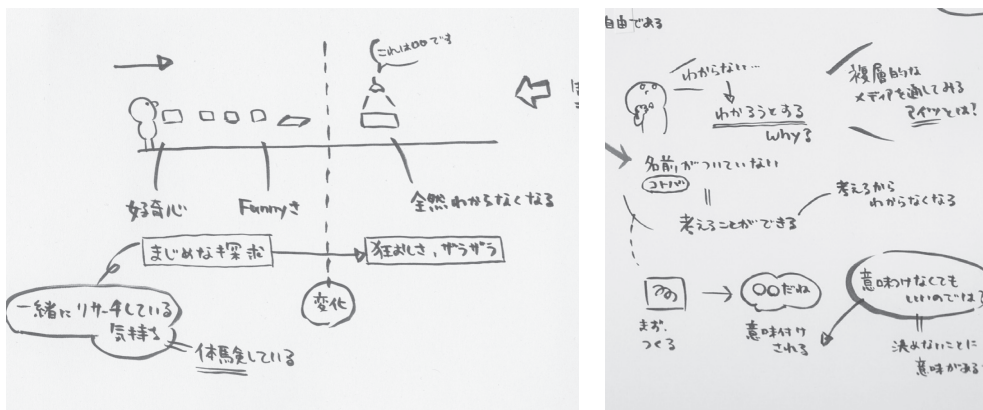 これは〇〇です
好奇心
Funnyさ
全然わからなくなる
まじめな探求
狂おしさ、ザラザラ
変化
一緒にリサーチしている
気持ち
体験している
自由である
わからない…
わかろうとする
Why?
複層的な
メディアを通してみる
アイツとは?
名前がついていない
コトバ
考えることができる
考えるから
わからなくなる
まず、
つくる
〇〇だね
意味付け
される
意味わけなくても
いいのでは?
決めないことに
意味がある